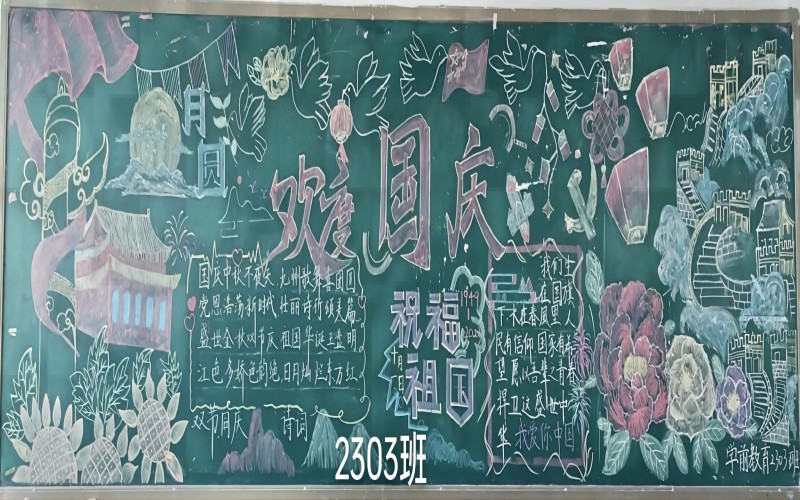 月圆
欢度国庆
国庆中秋不夜天 九州歌舞喜团圆
党恩浩荡新时代 壮丽诗侨颂美篇
盛世金秋双节庆 祖国华诞
江色多娇 日月灿烂东方红
双节同庆 诗词
祝福
祖国
1949
我们生
在国旗
下 人
民有信仰 国家有希
望 愿以吾辈之青春
捍卫这盛世中
华 我爱你中国
学前教育2303班
2303班